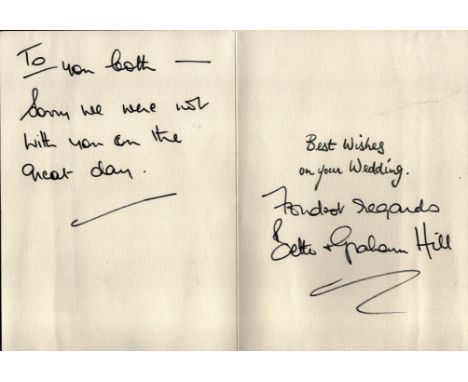 To you both —
Sorry we were not
with you on the
great day.
Best Wishes
on your Wedding.
Fondest regards
Bette + Graham Hill